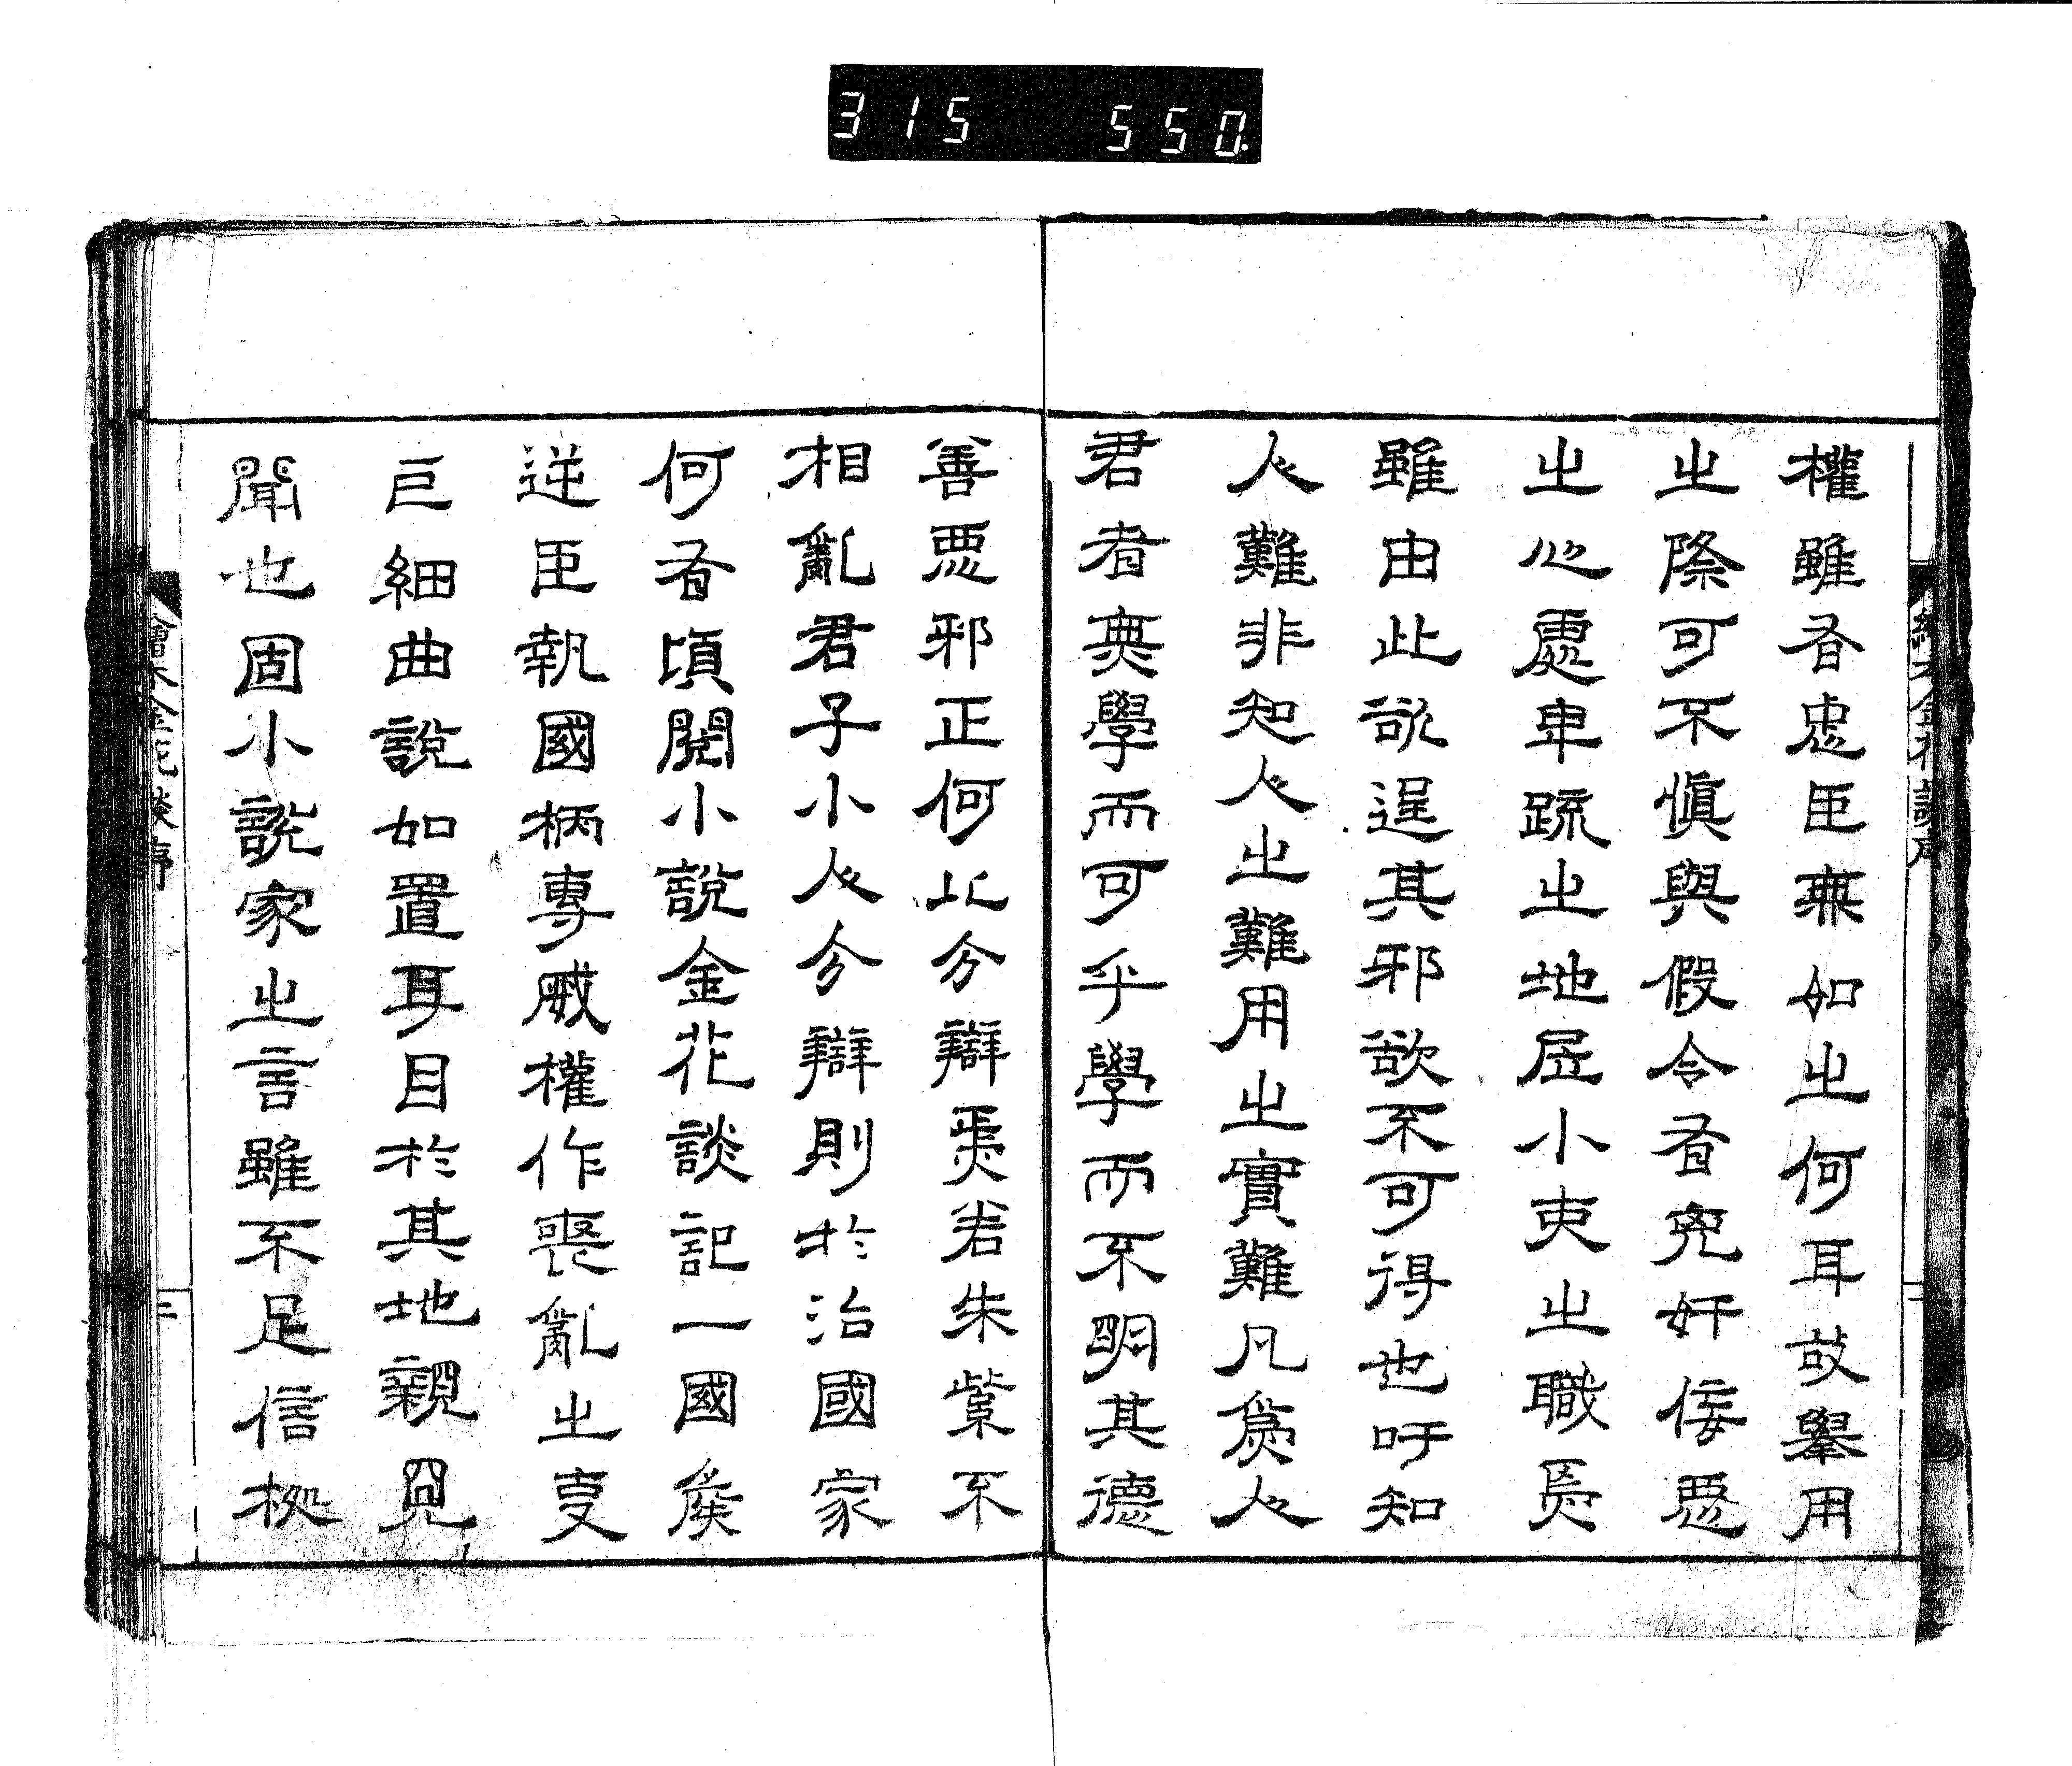 315 550.
權雖有忠臣無如之何耳故擧用
之際可不愼與假令有兇奸佞惡
之心處卑疏之地居小吏之職焉
雖由此欲逞其邪欲不可得也吁知
人難非知人之難用之實難凡爲人
君者無學而可乎學而不明其德
善惡邪正何以分辯焉若朱紫不
相亂君子小人分辯則於治國家
何有頃閱小說金花談記一國侯
逆臣執國柄專威權作喪亂之事
巨細曲說如置耳目於其地親見
聞也固小說家之言雖不足信據
繪本金花談序
二